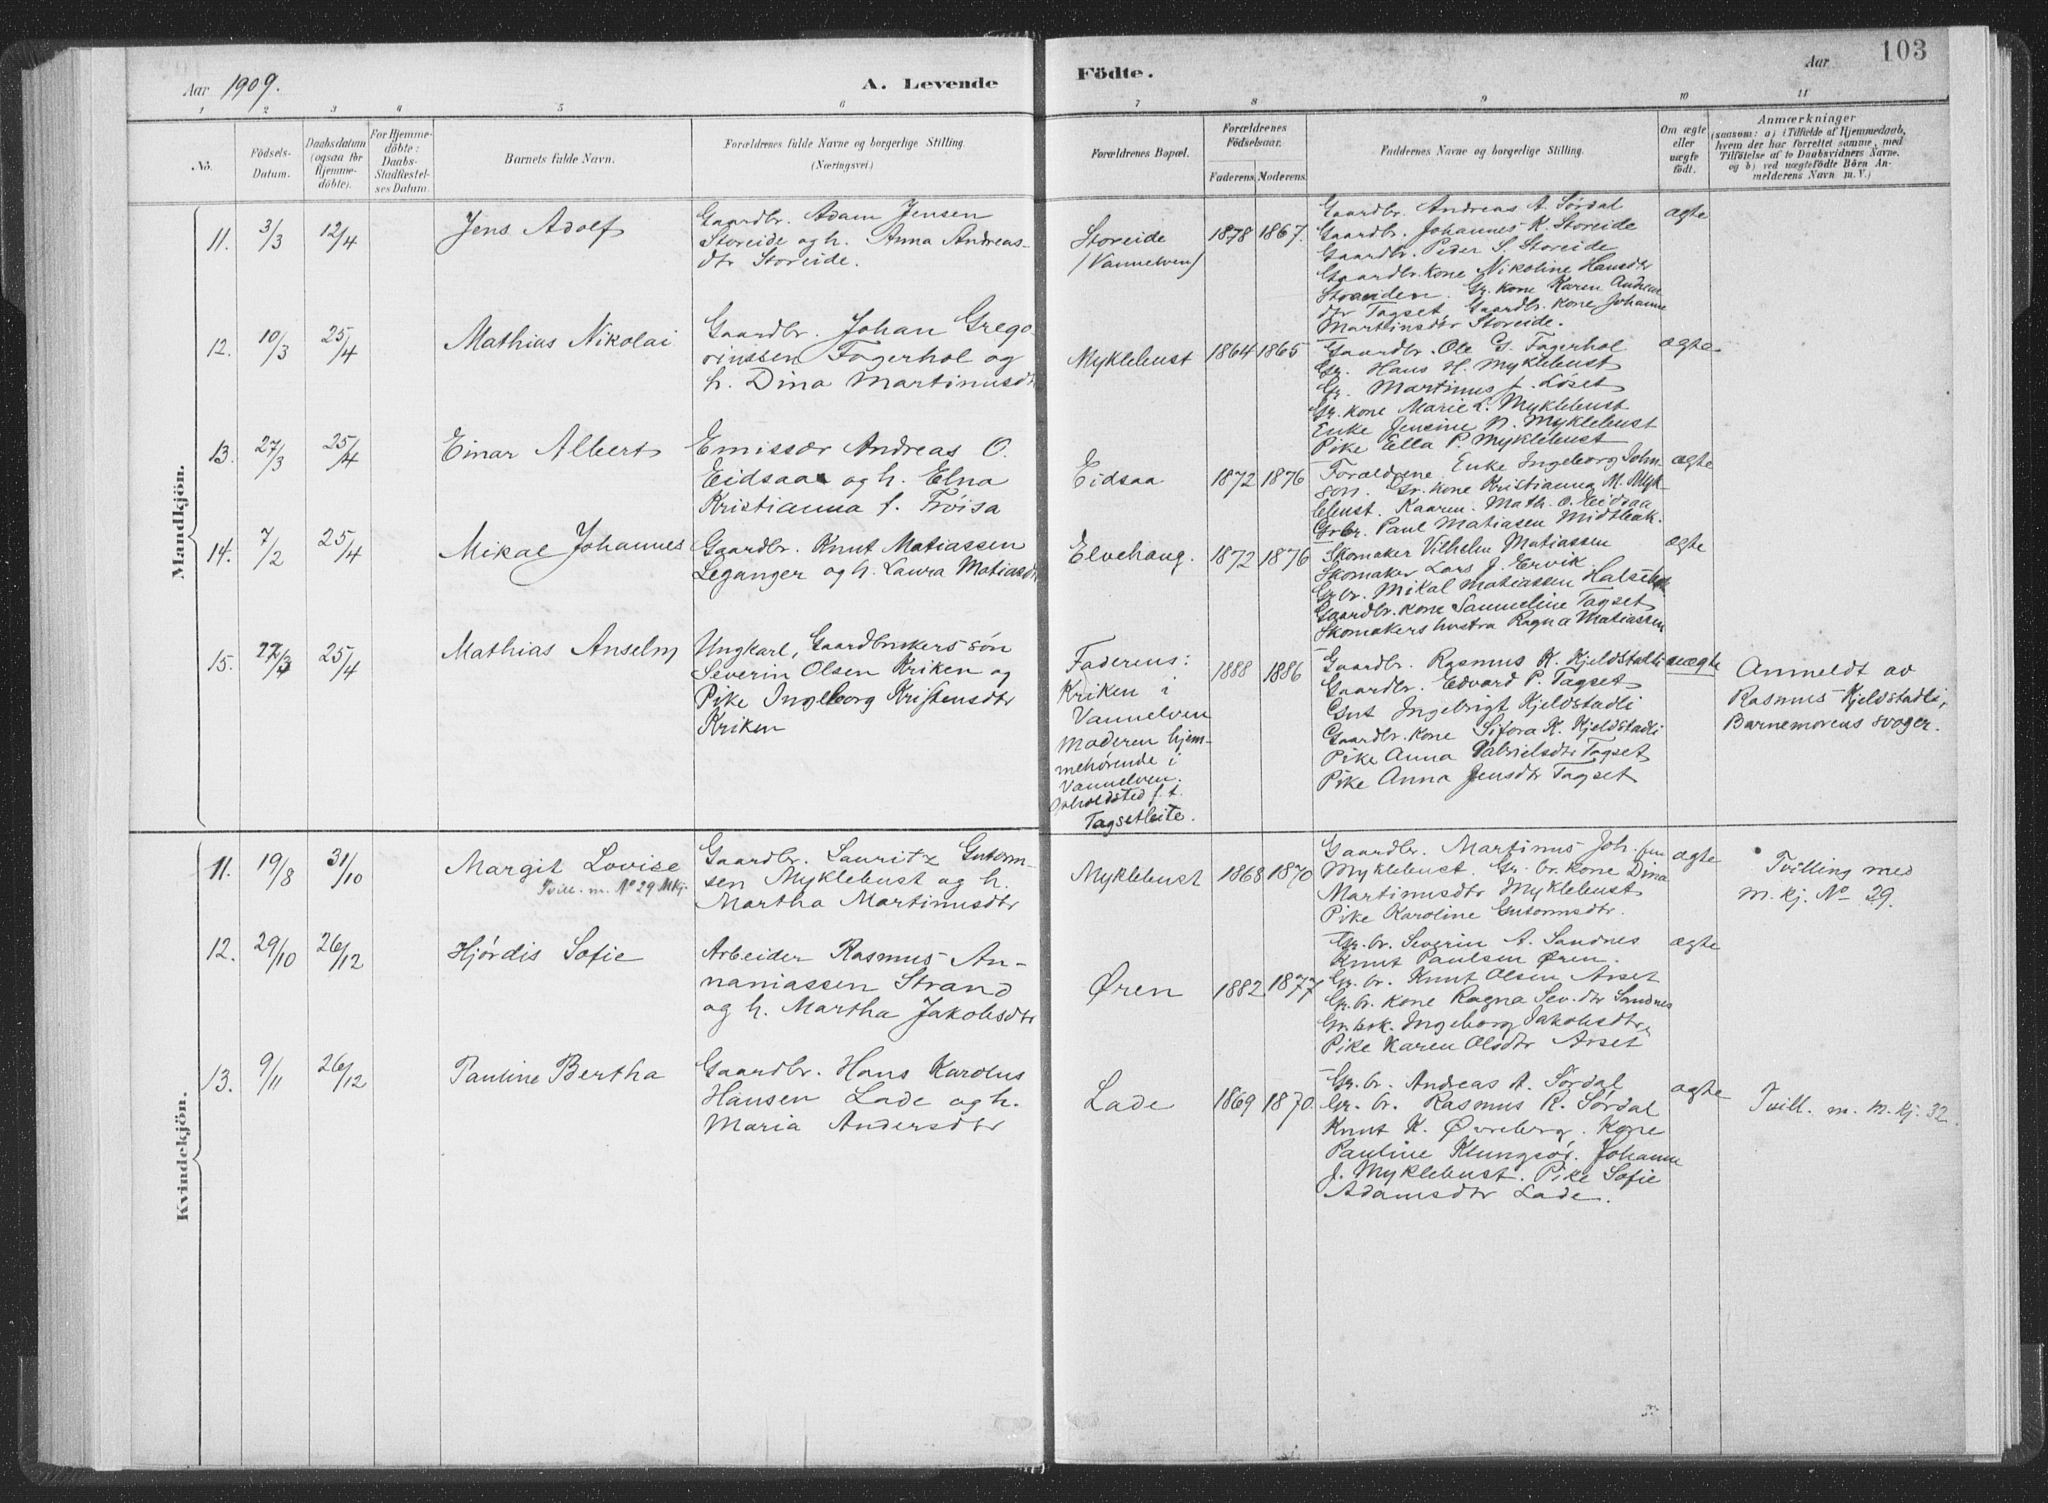 Aar 1909.
A. Levende
Födte.
Aar
103
1 2 3 4 5 6 7 8 9 10 11
No.
Födsels-
Datum.
Daabsdatum
(ogsaa for
Hjemme-
döbte).
For Hjemme-
döbte:
Daabs-
Stadfæstel-
ses Datum.
Barnets fulde Navn.
Forældrenes fulde Navne og borgerlige Stilling.
(Næringsvei)
Forældrenes Bopæl.
Forældrenes
Födselsaar.
Faderens. Moderens.
Faddernes Navne og borgerlige Stilling.
Om ægte
eller
uægte
födt.
Anmærkninger
(saasom: a) i Tilfælde af Hjemmedaab,
hvem der har forrettet samme, med
Tilföielse af to Daabsvidners Navne.
og b) ved uægtefödte Börn An-
melderens Navn m. V.)
Mandkjön.
11. 3/3 12/4 Jens Adolf
Gaardbr. Adam Jensen
Storeide og h. Anna Andreas-
dtr Storeide.
Storeide
(Vannelven)
1878 1867.
Gaardbr. Andreas A. Sørdal
Gaardbr. Johannes K. Storeide
Gaardbr. Peder S. Storeide
Gaardbr. kone Nikoline Hansdtr
Storeiden. Gr. kone Karen Andreas
dtr Tagset, Gaardbr. kone Johanne
Martinsdtr Storeide.
ægte
12. 10/3 25/4 Mathias Nikolai
Gaardbr. Johan Grego
riussen Fagerhol og
h. Dina Martinusdtr
Myklebust 1864 1865
Gaardbr. Ole G. Fagerhol
Gr. Hans H. Myklebust
Gr. Martinus J. Løset
Gr. kone Marie L. Myklebust
Enke Jensine N. Myklebust
Pike Ella P. Myklebust
ægte
13. 27/3 25/4 Einar Albert
Emissær Andreas O.
Eidsaa og h. Elna
Kristianna f. Frøisa
Eidsaa 1872 1876
Forældrene Enke Ingeborg John-
son. Gr. kone Kristianna M. Myk-
lebust. Kaaren. Math. O. Eidsaa
Grbr. Paul Matiasen Midtbak.
ægte
14. 7/2 25/4 Mikal Johannes
Gaardbr. Knut Matiassen
Leganger og h. Laura Matiasdtr
Elvehaug. 1872 1876
Skomaker Vilhelm Matiassen
Skomaker Lars J. Ervik.
Gr br. Mikal Matiassen
Gaardbr. kone Sanneline Tagset
Skomakers hustra Ragna Matiassen
ægte
15. 22/3 25/4 Mathias Anselm
Ungkarl, Gaardbrukers søn
Severin Olsen Kriken og
Pike Ingeborg Kristensdtr
Kriken
Faderens:
Kriken i
Vannelven
Moderen hjem-
mehørende i
Vannelven.
Opholdsted f. t.
Tagsetleite.
1888 1886
Gaardbr. Rasmus K. Kjeldstadli
Gaardbr. Edvard P. Tagset
Gut Ingebrigt Kjeldstadli
Gaardbr. kone Sifora K. Kjeldstadli
Pike Anna Gabrielsdtr Tagset
Pike Anna Jensdtr Tagset
uægte
Anmeldt av
Rasmus Kjeldstadli,
Barnemorens svoger.
Kvindekjön.
11. 19/8 31/10 Margit Lovise
Tvill. m. No 29 Mkj.
Gaardbr. Lauritz Guttorm-
sen Myklebust og h.
Martha Martinusdtr
Myklebust 1868 1870
Gaardbr. Martinus Joh.
Myklebust. Gr. br. kone Dina
Martinusdtr Myklebust
Pike Karoline Guttormsdtr.
ægte
Tvilling med
m. kj. No 29.
12. 29/10 26/12 Hjørdis Sofie
Arbeider Rasmus An-
naniassen Strand
og h. Martha Jakobsdtr
Øren 1882 1877
Gr. br. Severin A. Sandnes
Knut Paulsen Øren.
Gr. br. Knut Olsen Aarset
Gr. br. kone Ragna Sev. dtr Sandnes
Gr. brk. Ingeborg Jakobsdtr
Pike Karen Olsdtr Arset
ægte
13. 9/11 26/12 Pauline Bertha
Gaardbr. Hans Karolus
Hansen Lade og h.
Maria Andersdtr
Lade 1869 1870.
Gr. br. Andreas A. Sørdal
Gr. br. Rasmus R. Sørdal
Knut K. Øvreberg. Kone
Pauline Klungsør. Johanne
J. Myklebust. Pike Sofie
Adamsdtr Lade.
ægte
Tvill. m. m. kj. 32.